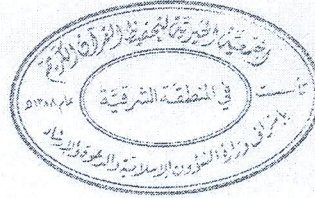 الجمعية الخيرية لتحفيظ القرآن الكريم
في المنطقة الشرقية
تأسست عام ١٣٨٨هـ
بإشراف وزارة الشؤون الإسلامية والدعوة والإرشاد